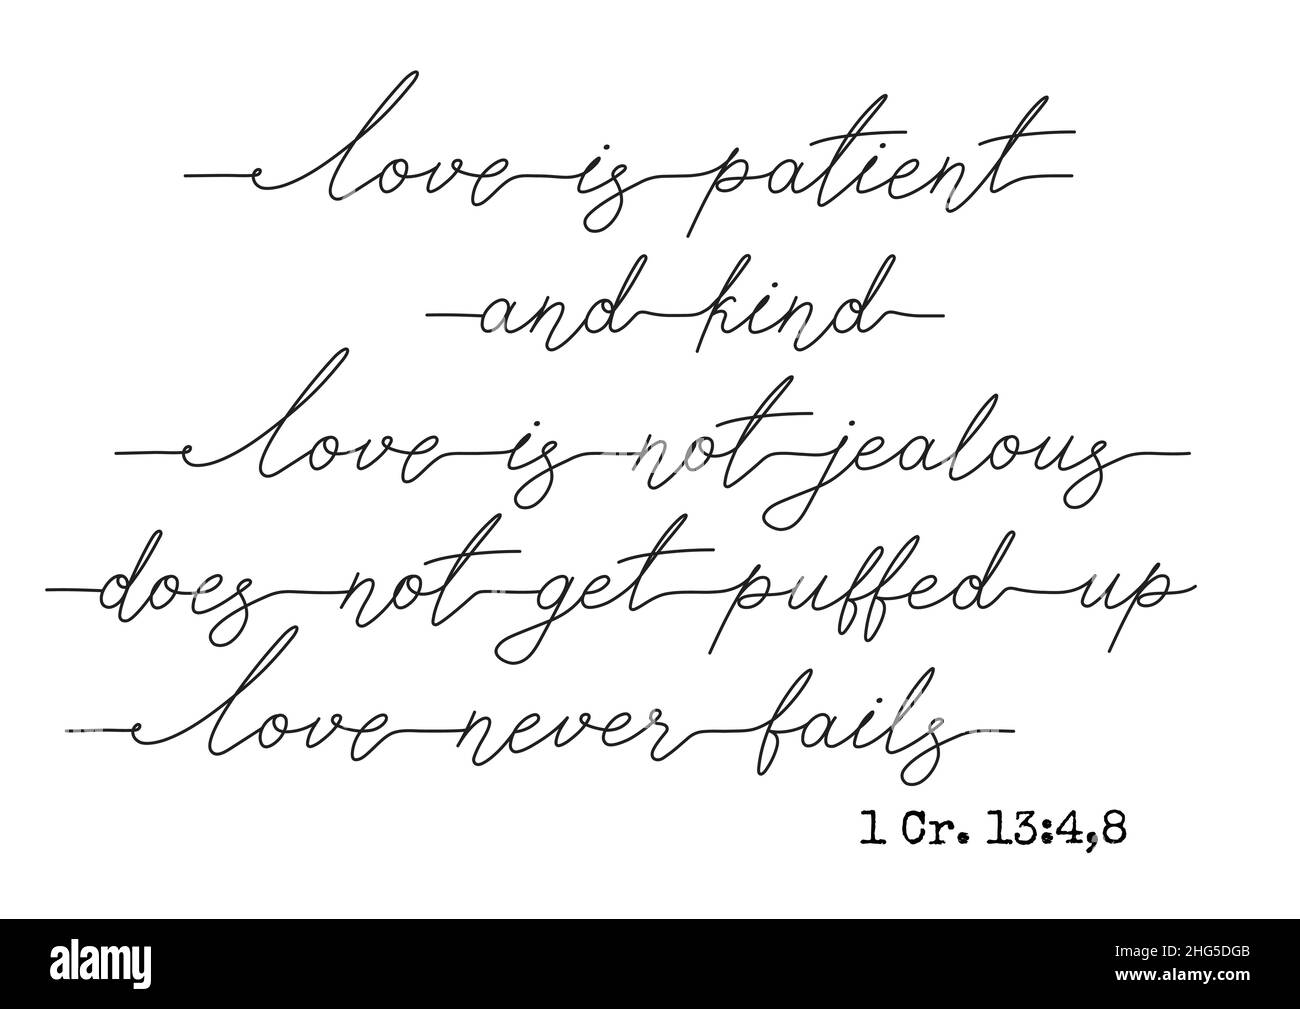 love is patient
and kind
love is not jealous
does not get puffed up
love never fails
1 Cr. 13:4,8
alamy
Image ID: 2HG5DGB
www.alamy.com